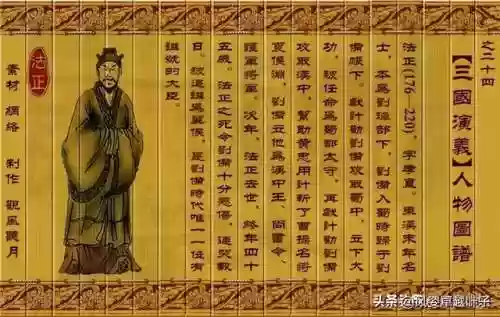 之二十四
【三國演義】人物圖譜
法正(176—220),字孝直。東漢末年名
士,本為劉璋部下,劉備入蜀時歸于劉
備帳下。獻計勸劉備攻取蜀中,立下大
功,被任命為蜀郡太守。再獻計勸劉備
攻取漢中,幫助黃忠用計斬了曹操名將
夏侯淵,劉備立他為漢中王、尚書令、
護軍將軍。次年,法正去世,終年四十
五歲。法正之死令劉備十分悲傷,連哭數
日。被追謚為翼侯,是劉備時代唯一一位有
謚號的大臣。
法正
素材 網絡 制作 觀風聽月